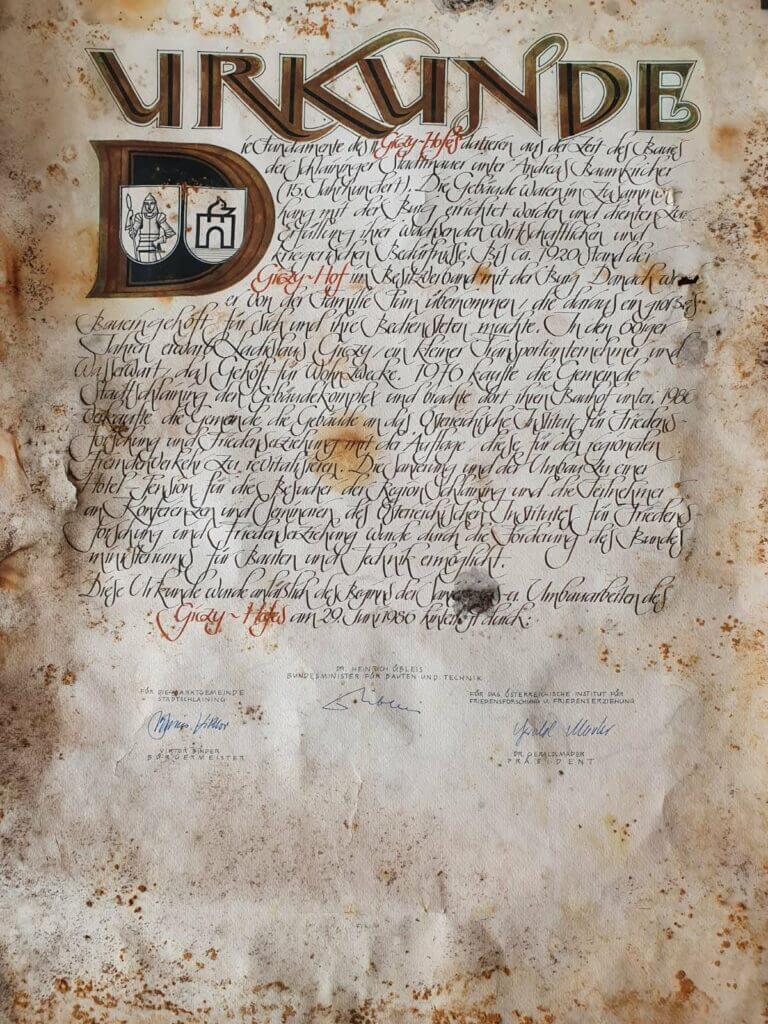 URKUNDE
Die Fundamente des "Giczy-Hofes datieren aus der Zeit des Baues
der Schlaininger Stadtmauer unter Andreas Baumkircher
(15. Jahrhundert). Die Gebäude waren im Zusammen-
hang mit der Burg errichtet worden und dienten zur
ihrer wachsenden wirtschaftlichen und
kriegerischen Bedürfnisse. Bis ca. 1920 stand der
Giczy-Hof im Besitzverband mit der Burg. Danach
er von der Familie übernommen, die daraus ein großes
Bauerngehöft für sich und ihre Bediensteten machte. In den 60iger
Jahren erwarb Ladislaus Giczy, ein kleiner Transportunternehmer und
Wasserwart, das Gehöft für Wohnzwecke. 1976 kaufte die Gemeinde
Stadtschlaining den Gebäudekomplex und brachte dort ihren Bauhof unter. 1986
verkaufte die Gemeinde die Gebäude an das Österreichische Institut für Friedens-
forschung und Friedenserziehung mit der Auflage, diese für den regionalen
Fremdenverkehr zu revitalisieren. Die Sanierung und der Umbau zu einer
Hotel-Pension für die Besucher der Region Schlaining und die Teilnehmer
an Konferenzen und Seminaren des Österreichischen Institutes für Friedens
forschung und Friedenserziehung wurde durch die Förderung des Bundes
ministeriums für Bauten und Technik ermöglicht.
Diese Urkunde wurde anläßlich des Beginns der Umbauarbeiten des
Giczy-Hofes am 29. Juni 1986 durch:
DR. HEINRICH ÜBLEIS
BUNDESMINISTER FÜR BAUTEN UND TECHNIK
FÜR DIE MARKTGEMEINDE
STADTSCHLAINING
FÜR DAS ÖSTERREICHISCHE INSTITUT FÜR
FRIEDENSFORSCHUNG U. FRIEDENSERZIEHUNG
Gerald Mader
VIKTOR BINDER
BÜRGERMEISTER
DR. GERALD MADER
PRÄSIDENT